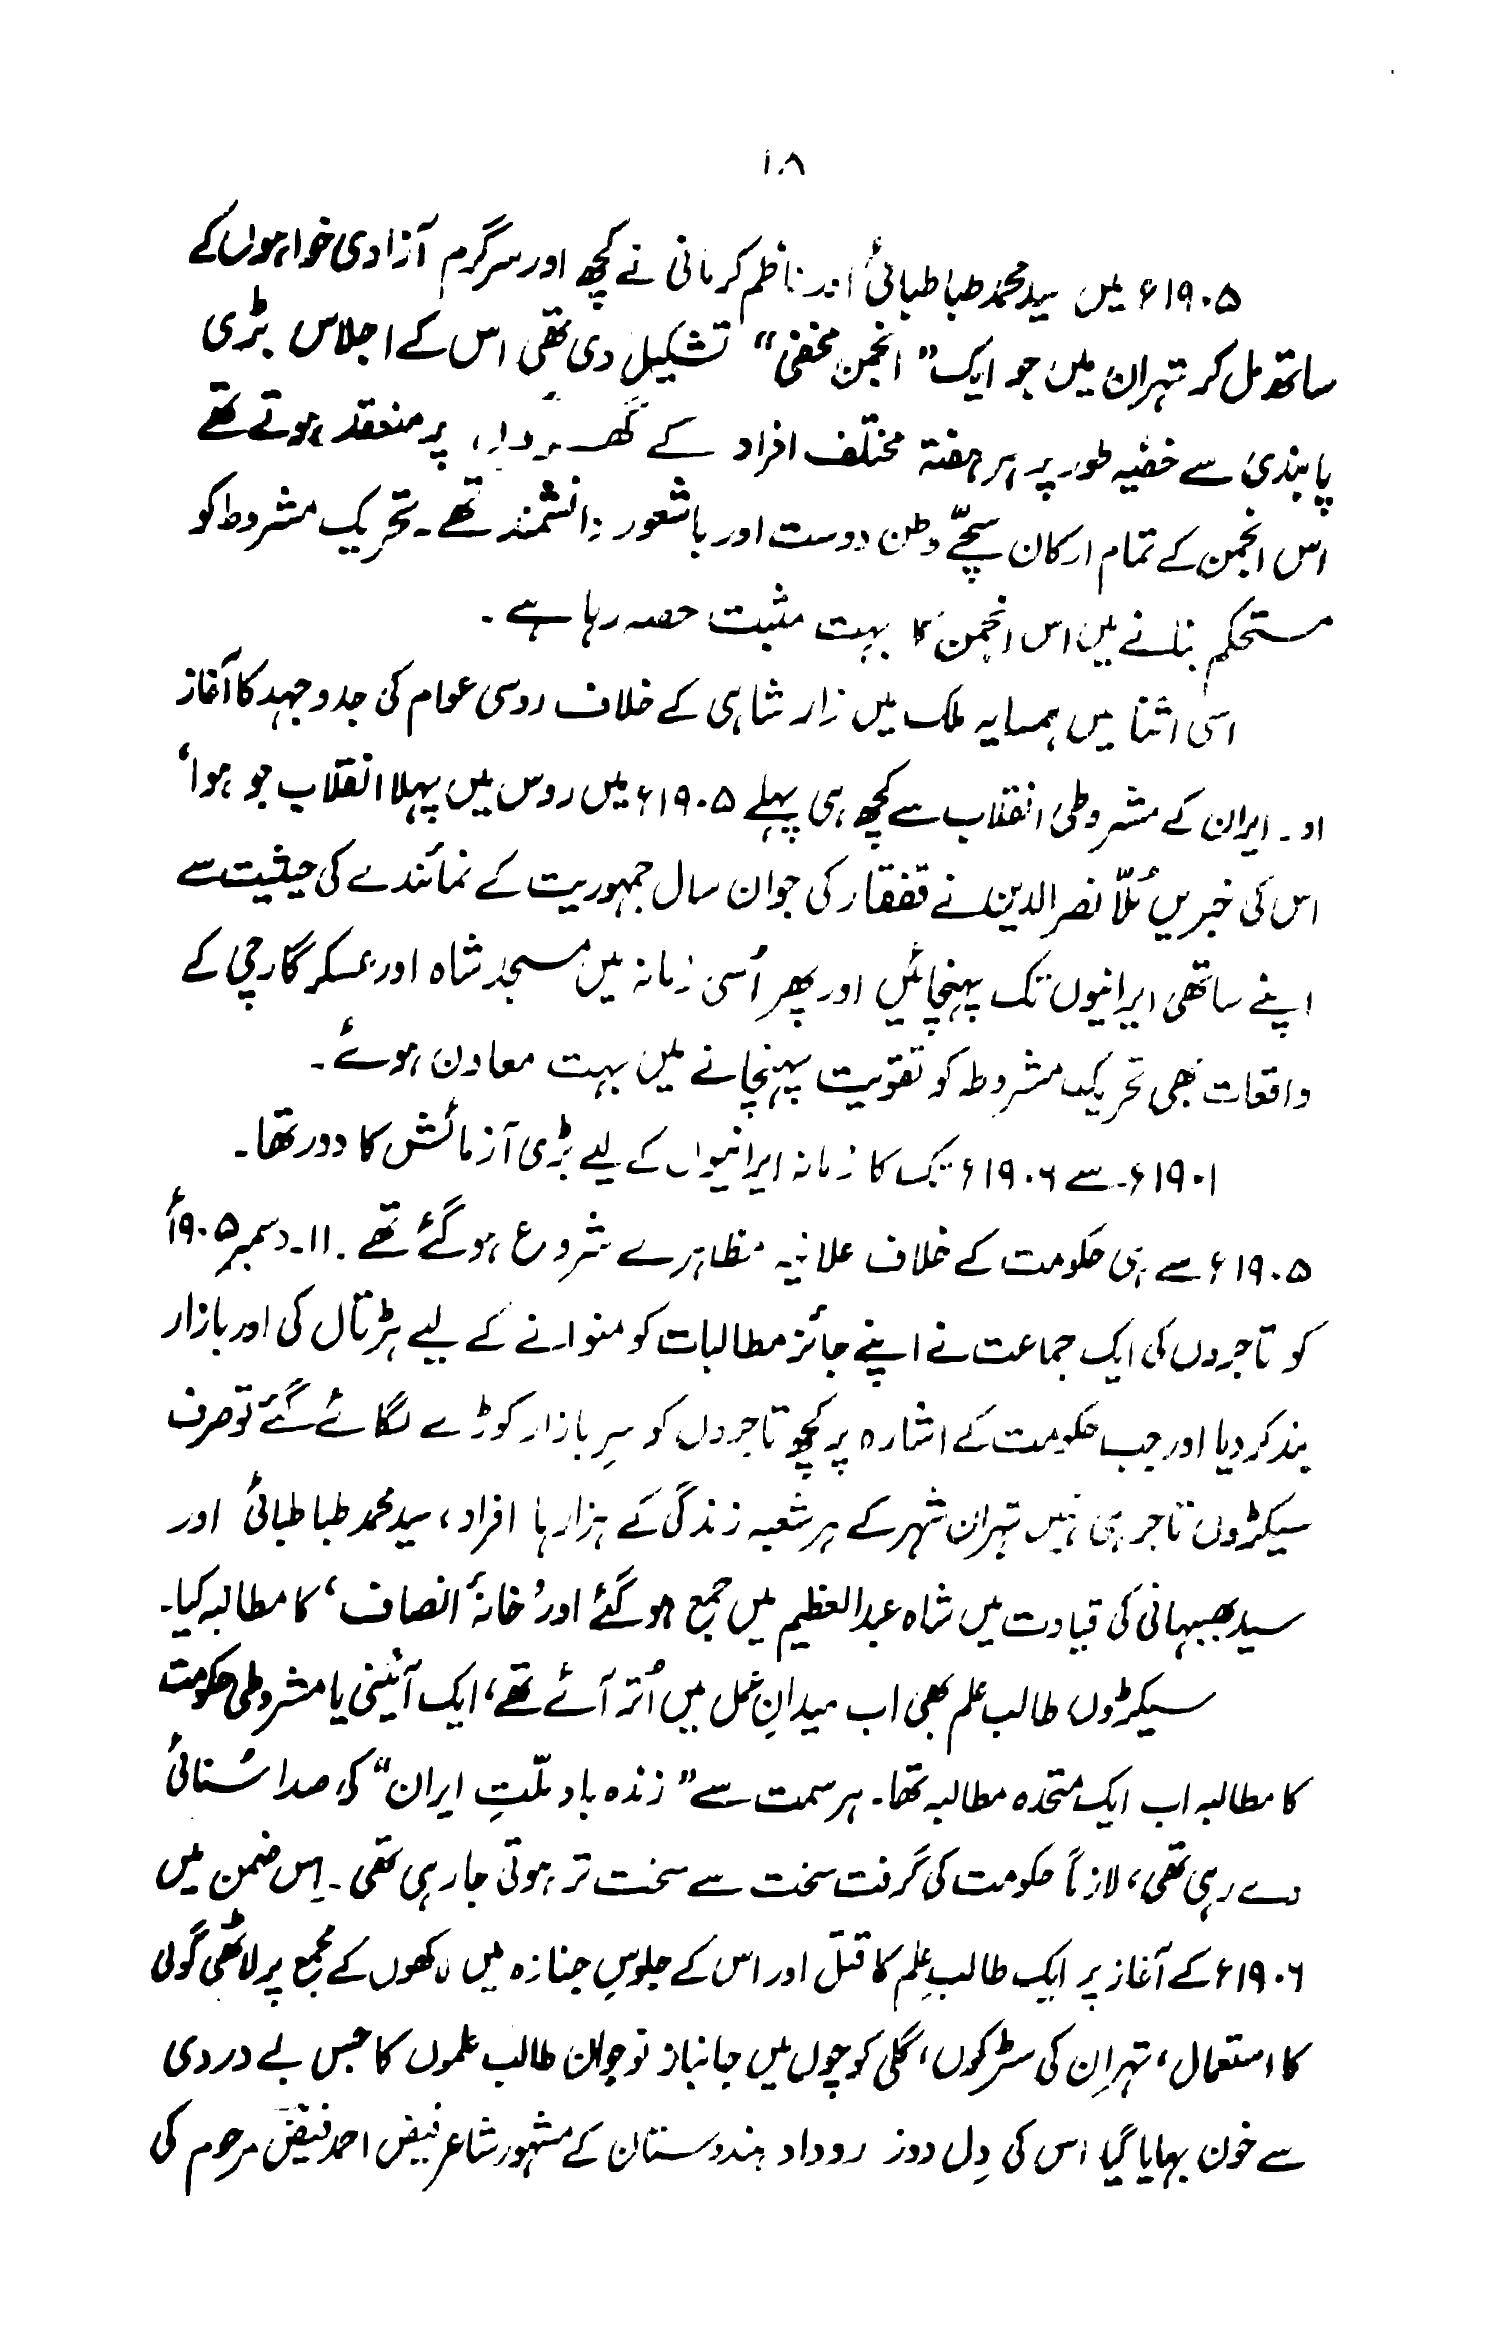 ۱۰۸
۱۹۰۵ء میں سید محمد طباطبائی اور ناظم کرمانی نے کچھ اور سرگرم آزادی خواہوں کے
ساتھ مل کر تہران میں جو ایک ”انجمن مخفی“ تشکیل دی تھی اس کے اجلاس بڑی
پابندی سے خفیہ طور پر ہر ہفتہ مختلف افراد کے گھروں پر منعقد ہوتے تھے
اس انجمن کے تمام ارکان سچّے وطن دوست اور باشعور دانشمند تھے۔ تحریک مشروط کو
مستحکم بنانے میں اس انجمن کا بہت مثبت حصہ رہا ہے۔
اسی اثنا میں ہمسایہ ملک میں زار شاہی کے خلاف روسی عوام کی جدوجہد کا آغاز
اور ایران کے مشروطی انقلاب سے کچھ ہی پہلے ۱۹۰۵ء میں روس میں پہلا انقلاب جو ہوا،
اس کی خبریں مُلّا نصر الدین نے قفقار کی جوان سال جمہوریت کے نمائندے کی حیثیت سے
اپنے ساتھی ایرانیوں تک پہنچائیں اور پھر اُسی زمانہ میں مسجد شاہ اور عسکر گارچی کے
واقعات بھی تحریک مشروطہ کو تقویت پہنچانے میں بہت معاون ہوئے۔
۱۹۰۱ء سے ۱۹۰۶ء تک کا زمانہ ایرانیوں کے لیے بڑی آزمائش کا دور تھا۔
۱۹۰۵ء سے ہی حکومت کے خلاف علانیہ مظاہرے شروع ہو گئے تھے۔ ۱۱۔دسمبر ۱۹۰۵ء
کو تاجروں کی ایک جماعت نے اپنے جائز مطالبات کو منوانے کے لیے ہڑتال کی اور بازار
بند کر دیا اور جب حکومت کے اشارہ پر کچھ تاجروں کو سرِ بازار کوڑے لگائے گئے تو صرف
سیکڑوں تاجر ہی نہیں تہران شہر کے ہر شعبہ زندگی کے ہزارہا افراد، سید محمد طباطبائی اور
سید بھبہانی کی قیادت میں شاہ عبدالعظیم میں جمع ہو گئے اور ’خانۂ انصاف‘ کا مطالبہ کیا۔
سیکڑوں طالب علم بھی اب میدانِ عمل میں اُتر آئے تھے، ایک آئینی یا مشروطی حکومت
کا مطالبہ اب ایک متحدہ مطالبہ تھا۔ ہر سمت سے ”زندہ باد ملّتِ ایران“ کی صدا سُنائی
دے رہی تھی، لازماً حکومت کی گرفت سخت سے سخت تر ہوتی جا رہی تھی۔ اِس ضمن میں
۱۹۰۶ء کے آغاز پر ایک طالبِ علم کا قتل اور اس کے جلوسِ جنازہ میں لاکھوں کے مجمع پر لاٹھی گولی
کا استعمال، تہران کی سڑکوں، گلی کوچوں میں جانباز نوجوان طالب علموں کا جس بے دردی
سے خون بہایا گیا اس کی دِل دوز روداد ہندوستان کے مشہور شاعر فیض احمد فیض مرحوم کی